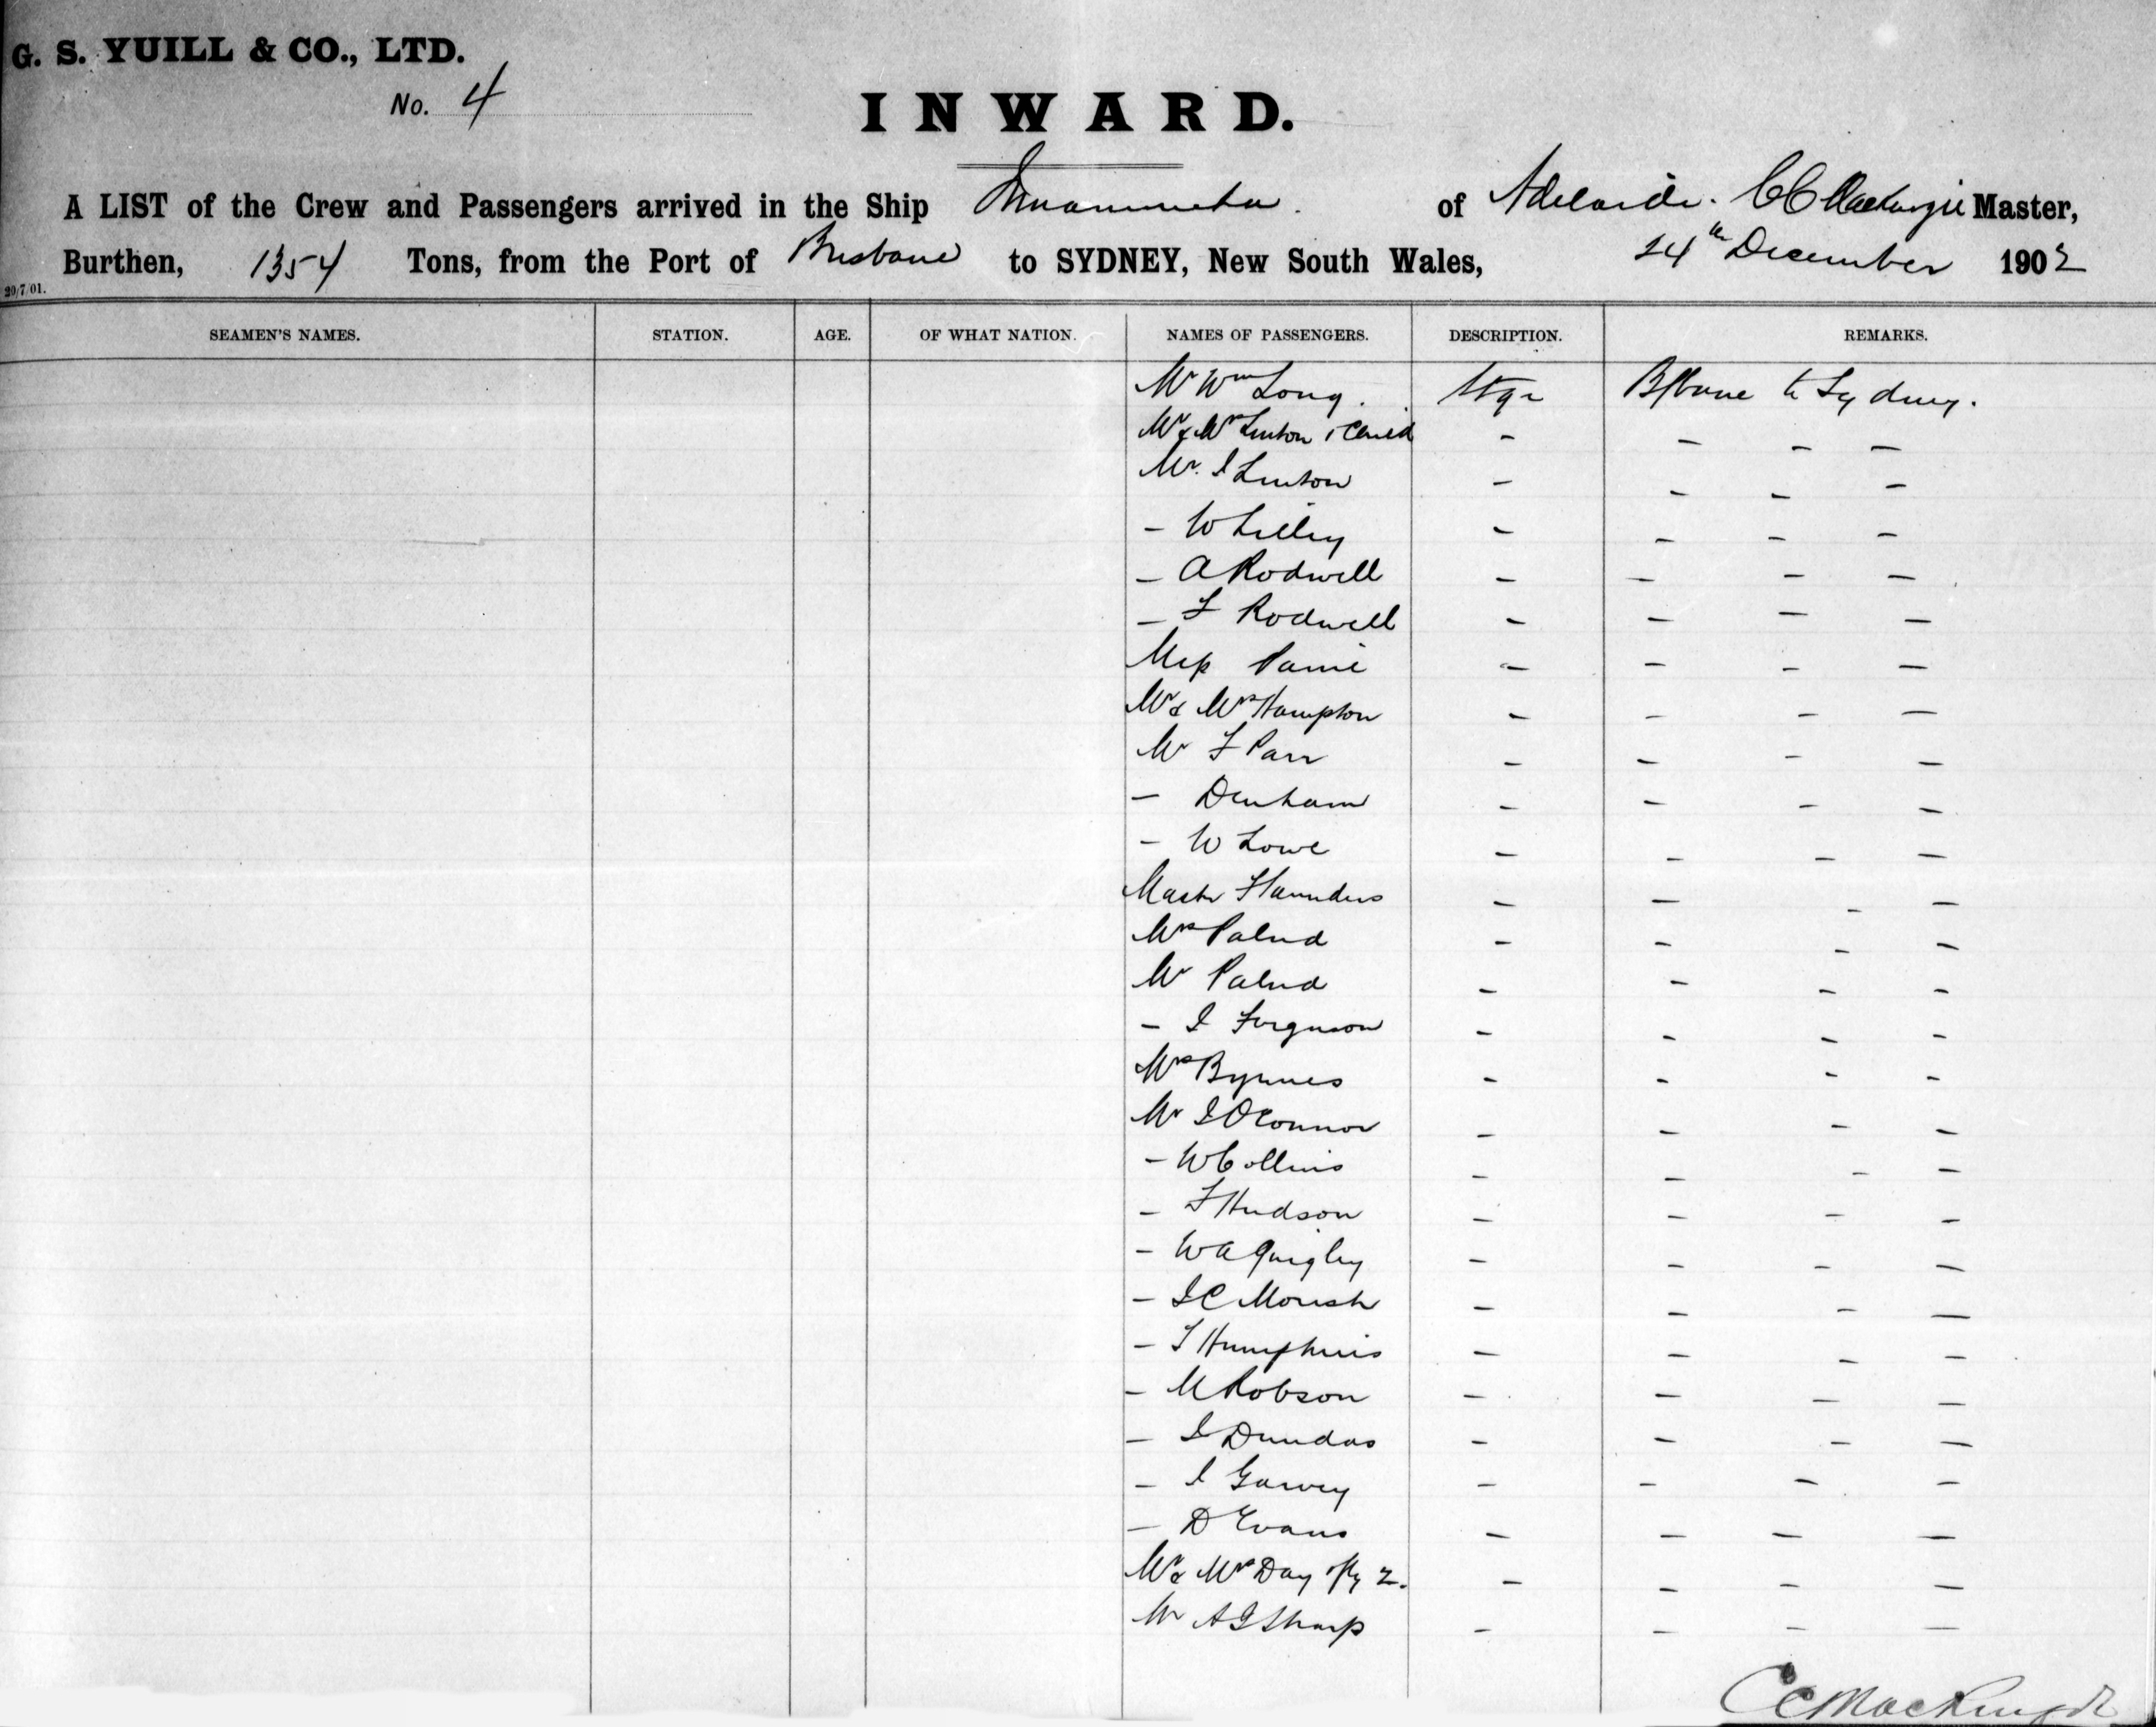 G. S. YUILL & CO., LTD.
No. 4
INWARD.
A LIST of the Crew and Passengers arrived in the Ship Innamincka of Adelaide. CC Mackenzie Master,
Burthen, 1354 Tons, from the Port of Brisbane to SYDNEY, New South Wales, 24th December 1902
20/7/01.
SEAMEN'S NAMES. STATION. AGE. OF WHAT NATION. NAMES OF PASSENGERS. DESCRIPTION. REMARKS.
Mr Wm Long. Stge B/bane to Sydney.
Mr & Mrs Linton 1 Child - - - -
Mr. J Linton - - - -
- W Lilley - - - -
- A Rodwell - - - -
- F Rodwell - - - -
Miss - - - -
Mr & Mrs Hampton - - - -
Mr F Parr - - - -
- Denham - - - -
- W Lowe - - - -
Master - - - -
Mrs - - - -
Mr - - - -
- J Ferguson - - - -
Mrs Byrnes - - - -
Mr J OConnor - - - -
- W Collins - - - -
- F Hudson - - - -
- W A Quigley - - - -
- J C - - - -
- T Humphries - - - -
- M Robson - - - -
- J Dundas - - - -
- J Garvey - - - -
- D Evans - - - -
Mr & Mrs Day 2. - - - -
Mr A J Sharp - - - -
CC Mackenzie